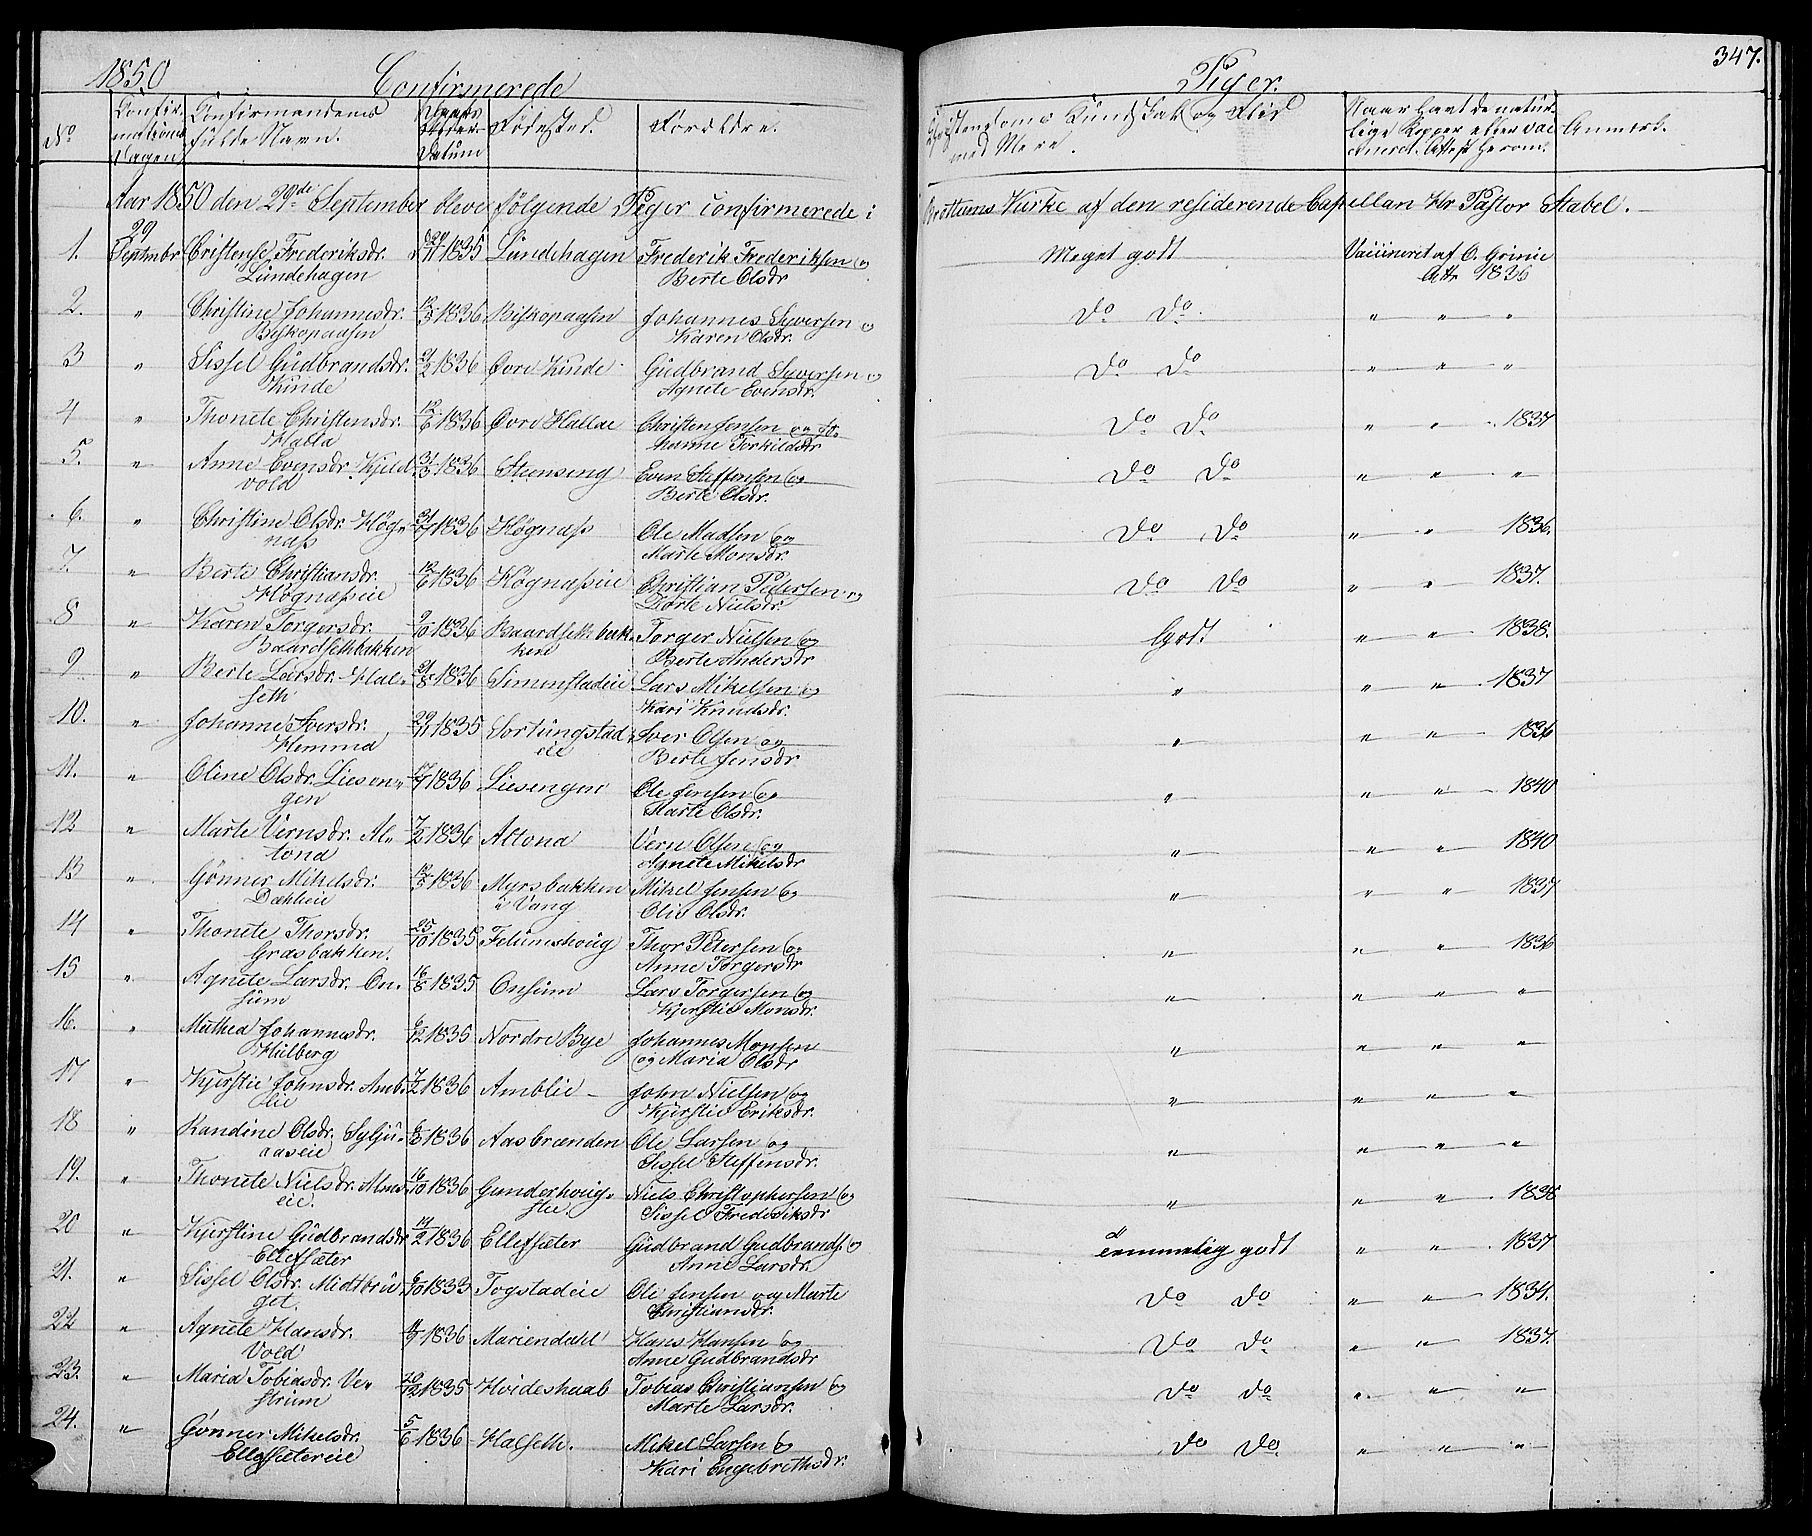 1850 Confirmerede Piger. 347.
No Confirmations Dagen Confirmandens fulde Navn. Daatum Fødested. Forældre. Christendoms Kundskab og Flid med Mere. Naar Havt de naturlige Kopper eller vaccineret. Attest herom. Anmerk.
Aar 1850 den 29de September bleve følgende Piger confirmerede i Brøttums Kirke af den residerende Capellan Hr Pastor Stabel.
1. 29 September Cristense Frederiksdr. 1835 Lundehagen Frederik Frederiksen og Meget godt Vaccineret af O. Grimie
Lundehagen Berte Olsdr Att. 1836
2. " Christine Johannesdr. 1836 Biskopaasen Johannes Syversen og Do Do " " "
Biskopaasen Karen Olsdr.
3 " Sissel Gudbrandsdr. 1836 Øvre Kinde Gudbrand Syversen og Do Do " " "
Kinde Agnete Evensdr.
4 " Thonete Christensdr. 12/6 1836 Øvre Christen Jensen og Jo- Do Do " " 1837
hanne Torkildsdr
5. " Anne Evensdr. Kjeld 1836 Stenseng Even Steffensen og Do Do " " "
vold Berte Olsdr.
6. " Christine Olsdr. Høg- 1836 Høgnass Ole Madsen og Do Do " " 1836.
nass Marte Monsdr.
7. " Berte Christiansdr. 12/6 1836 Høgnasseie Christian Pedersen og Do Do " " 1837.
Høgnasseie Dorte Nielsdr.
8 " Karen Torgersdr. 9/10 1836 Baardsethbak- Torger Nielsen og Godt " " 1838.
Baardsethbakken ken Berte Andersdr
9. " Berte Larsdr. Hal- 21/8 1836 Simenstadeie Lars Mikelsen og " " " 1837
seth Kari Knudsdr.
10. " Johanne Iversdr. 29/11 1835 Sortungstad Iver Olsen og " " " 1836
Hemma eie Berte Jensdr
11. " Oline Olsdr. Liesen- 1836 Liesengen Ole Jensen og " " " 1840
gen Marte Olsdr.
12 " Marte Vernsdr. Al- 7/2 1836 Altona Vern Olsen og " " " 1840
tona Agnete Mikelsdr
13 " Gønner Mikelsdr. 1836 Myrsbakken Mikel Jensen og " " " 1837
Dæhlieie i Vang Olis Olsdr.
14 " Thonete Thorsdr. 25/10 1835 Felumshoug Thor Petersen og " " " 1836
Græsbakken. Anne Torgersdr
15 " Agnete Larsdr. On- 16/8 1835 Onsum Lars Torgersen og " " " "
sum Kjerstie Monsdr.
16. " Mathea Johannesdr. 6/12 1835 Nordre Bye Johannes Monsen " " " "
Hulberg og Maria Olsdr
17 " Kjerstie Johnsdr. Amb- 7/2 1836 Amblie John Nielsen og " " " "
lie Kjerstie Eriksdr.
18 " Randine Olsdr. Sylju- 6/3 1836 Aasbrænden Ole Larsen og " " " "
aaseie Sissel Steffensdr.
19. " Thonete Nielsdr. Alme- 16/10 1836 Gunderhoug- Niels Christophersen og " " " 1838
eie. stie. Sissel Frederiksdr
20 " Kjerstine Gudbrandsdr 14/2 1836 Ellefsæter Gudbrand Gudbrands. og temmelig godt " " 1837
Ellefsæter Anne Larsdr.
21. " Sissel Olsdr. Midtbrue 6/10 1833 Togstadeie Ole Jensen og Marte Do Do " " 1834.
get. Christiansdr.
22 " Agnete Hansdr. 1836 Mariendahl Hans Hansen og Do Do " " 1837.
Vold Anne Gudbrandsdr
23. " Maria Tobiasdr. Ve- 20/12 1835 Hvideshaab Tobias Christiansen og Do Do " " "
strum Marte Larsdr.
24. " Gønner Mikelsdr. 5/6 1836 Halseth. Mikel Larsen og Do Do " " "
Ellefsætereie Kari Engebrethsdr.